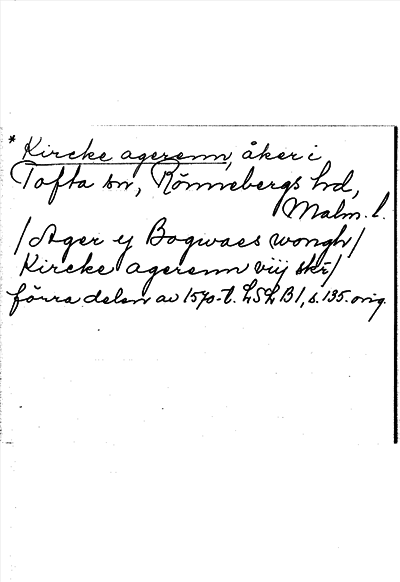 * Kircke agerenn, åker i
Tofta sn, Rönnebergs hd,
Malm. l.
/Ager ij Bogwaes wongh/
Kircke agerenn viij skr/
förra delen av 1570-t. LSLB1, s. 135. orig.